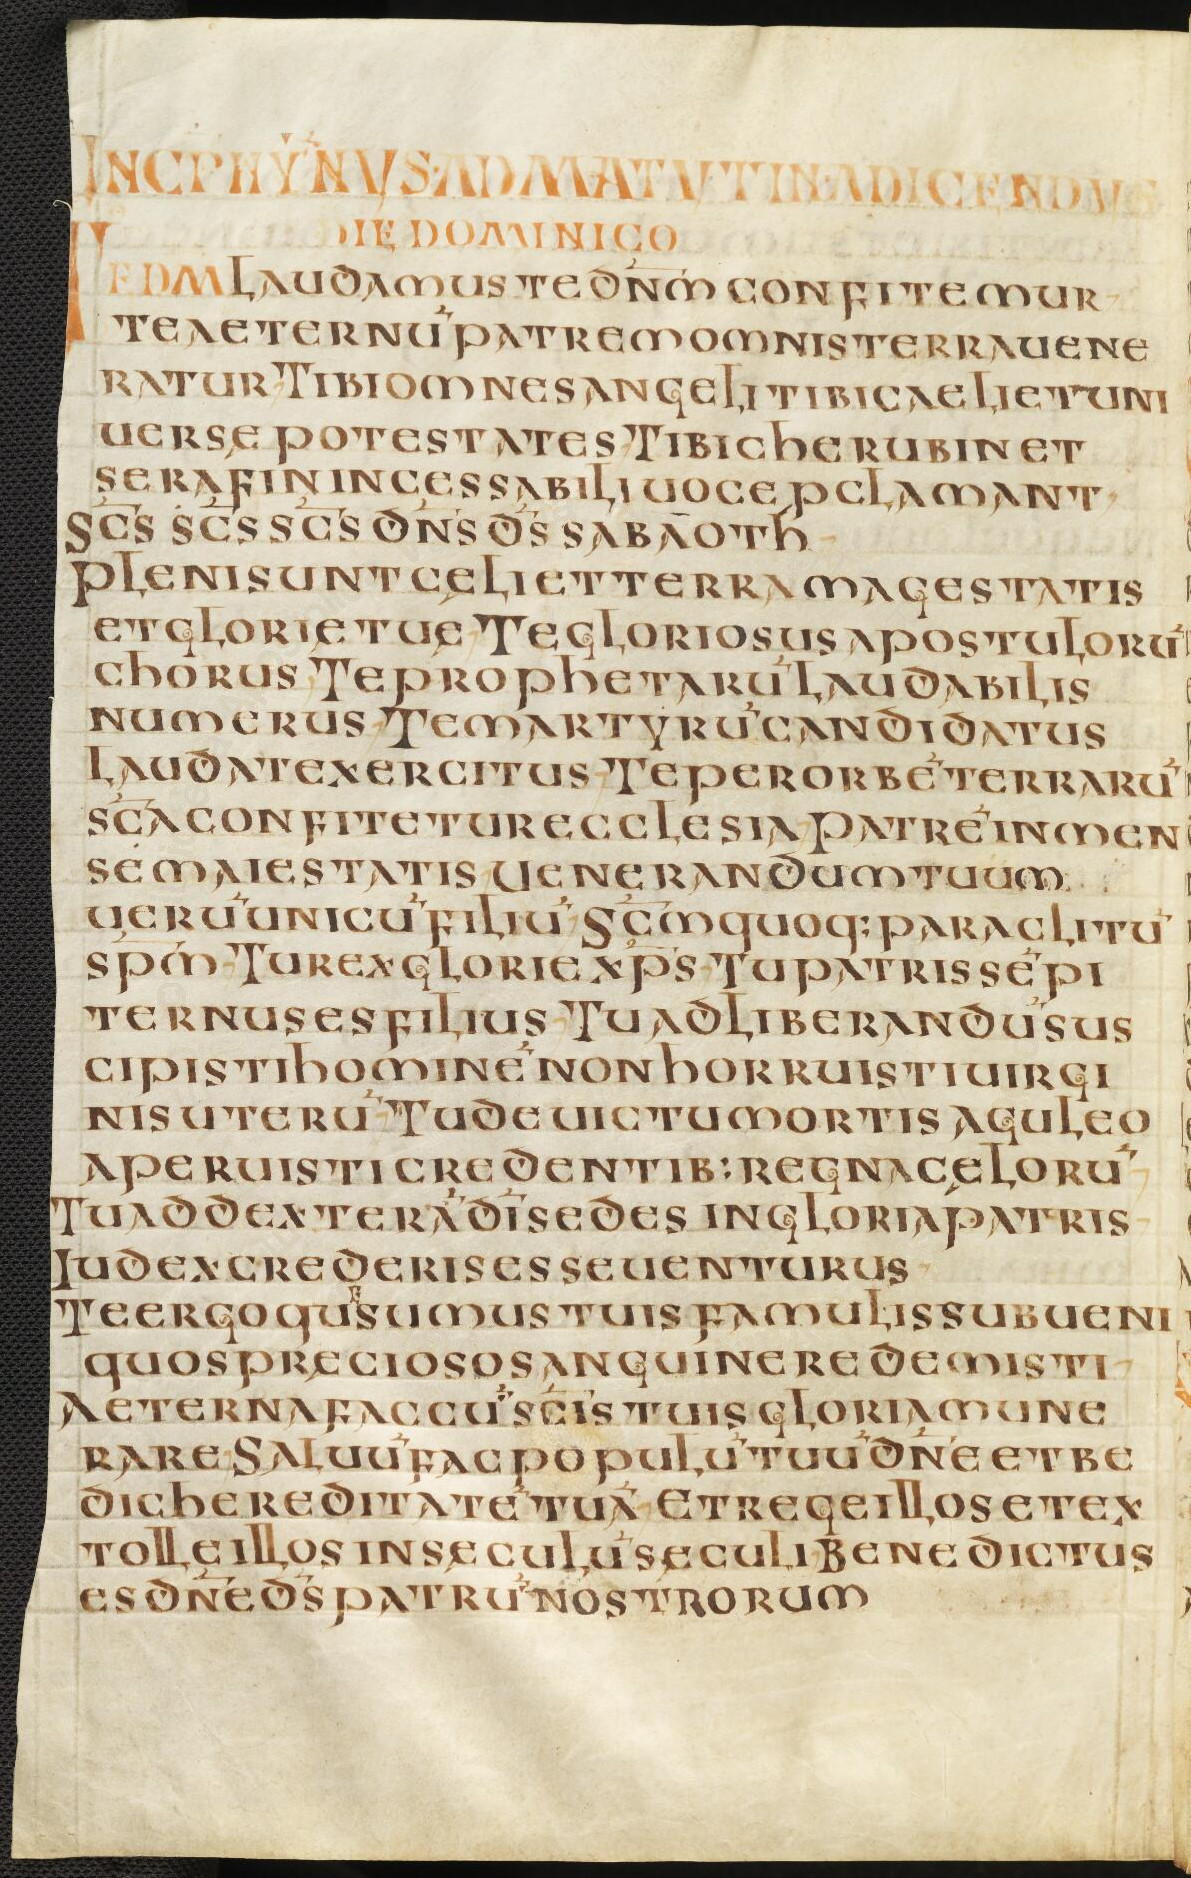 INCP HYMNUS AD MATUTIN ADICENDUS
DIE DOMINICO
TEDM LAUDAMUS TE DN̅M CONFITEMUR
TE AETERNU̅ PATREM OMNIS TERRA UENE
RATUR TIBI OMNES ANGELI TIBI CAELI ET UNI
UERSE POTESTATES TIBI CHERUBIN ET
SERAFIN INCESSABILI UOCE PCLAMANT
SC̅S SC̅S SC̅S DN̅S DS̅ SABAOTH
PLENI SUNT CĘLI ET TERRA MAGESTATIS
ET GLORIĘ TUĘ TE GLORIOSUS APOSTULORU̅
CHORUS TE PROPHETARU̅ LAUDABILIS
NUMERUS TE MARTYRU̅ CANDIDATUS
LAUDAT EXERCITUS TE PER ORBE̅ TERRARU̅
SC̅A CONFITETUR ECCLESIA PATRE̅ INMEN
SE MAIESTATIS UENERANDUM TUUM
UERU̅ UNICU̅ FILIU̅ SC̅M QUOQ; PARACLITU̅
SPM̅ TU REX GLORIE XPS̅ TU PATRIS SE̅PI
TERNUS ES FILIUS TU AD LIBERANDU̅ SUS
CIPISTI HOMINE̅ NON HORRUISTI UIRGI
NIS UTERU̅ TU DEUICTU MORTIS AGULEO
APERUISTI CREDENTIB: REGNA CĘLORU̅
TU AD DEXTERA̅ DI̅ SEDES IN GLORIA PATRIS
IUDEX CREDERIS ESSE UENTURUS
TE ERGO QUESUMUS TUIS FAMULIS SUBUENI
QUOS PRECIOSO SANGUINE REDEMISTI
AETERNA FAC CU̅ SC̅IS TUIS GLORIA MUNE
RARE SALUU̅ FAC POPULU̅ TUU̅ DN̅E ET BE
DIC HEREDITATE̅ TUA̅ ET REGE ILLOS ET EX
TOLLE ILLOS IN SĘCULU̅ SĘCULI BENEDICTUS
ES DN̅E DS̅ PATRU̅ NOSTRORUM